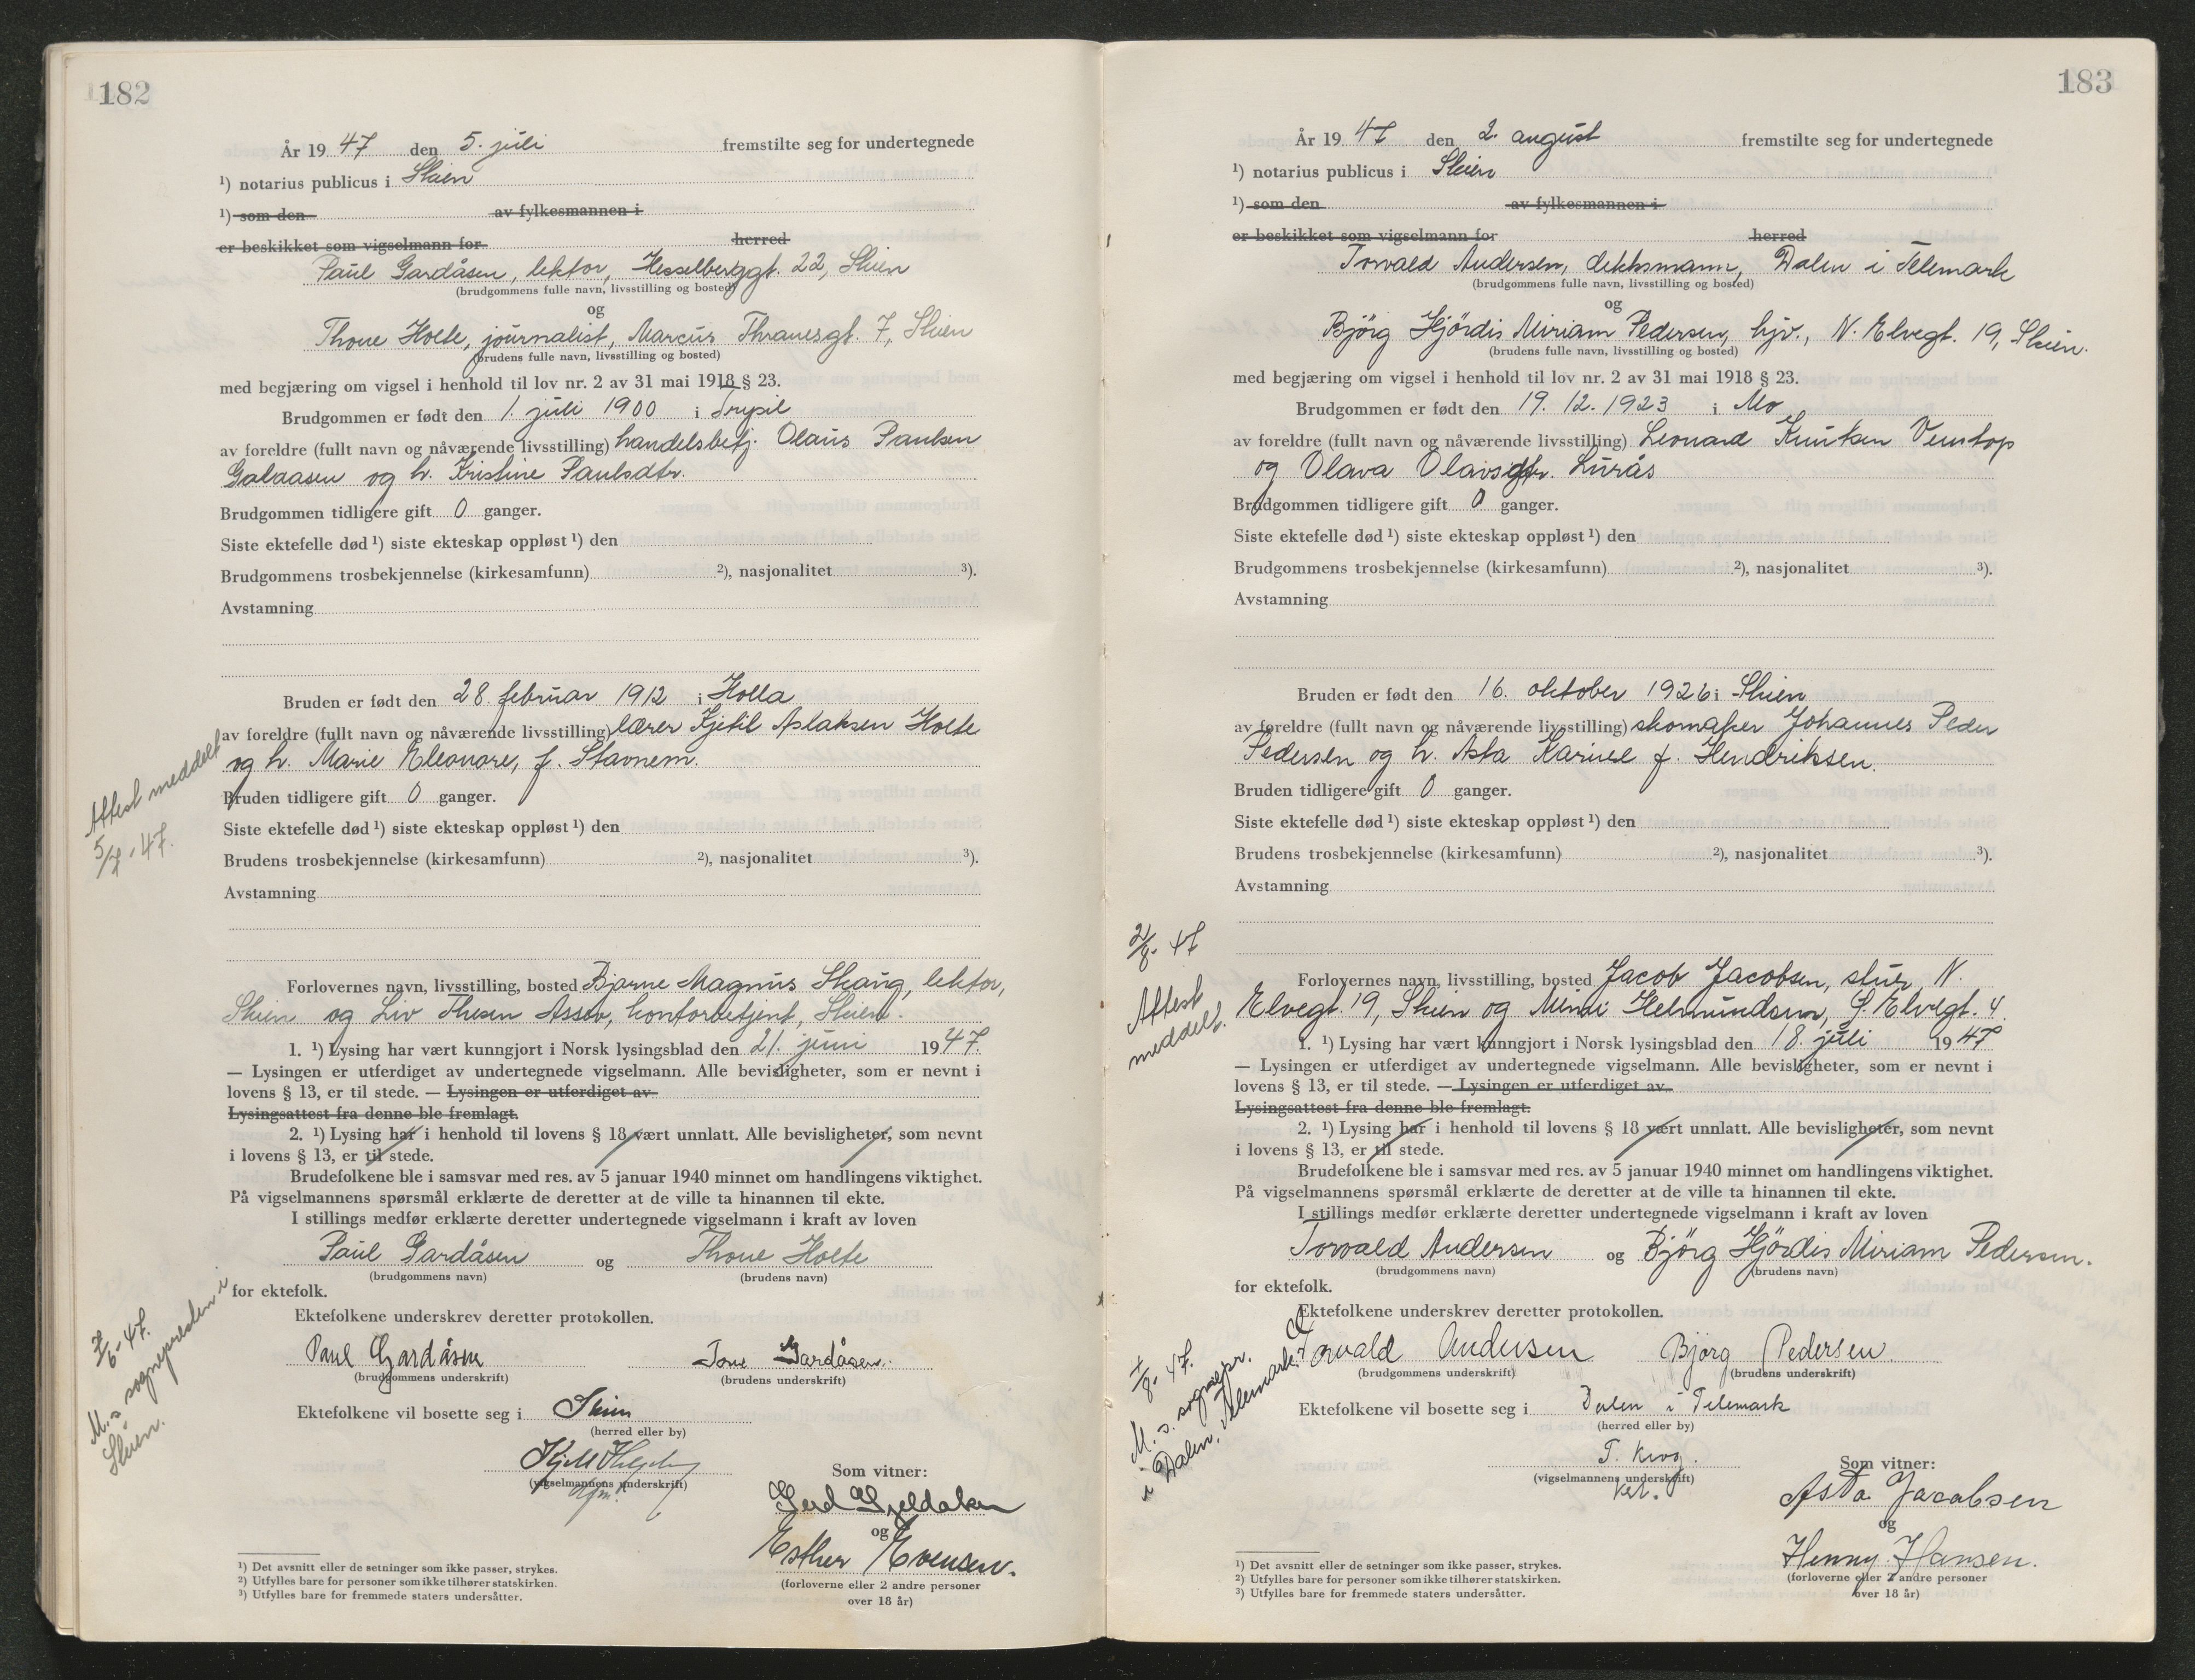 182
År 19 47 den 5. juli fremstilte seg for undertegnede
¹) notarius publicus i Skien
¹) som den av fylkesmannen i
er beskikket som vigselmann for herred
Paul Gardåsen, lektor, Hesselberggt. 22, Skien
(brudgommens fulle navn, livsstilling og bosted)
og
Thone Holte, journalist, Marcus Thranesgt. 7, Skien
(brudens fulle navn, livsstilling og bosted)
med begjæring om vigsel i henhold til lov nr. 2 av 31 mai 1918 § 23.
Brudgommen er født den 1. juli 1900 i Trysil
av foreldre (fullt navn og nåværende livsstilling) handelsbetj. Olaus Paulsen
Galaasen og h. Kristine Paulsdtr.
Brudgommen tidligere gift 0 ganger.
Siste ektefelle død ¹) siste ekteskap oppløst ¹) den
Brudgommens trosbekjennelse (kirkesamfunn) ²), nasjonalitet ³).
Avstamning
Bruden er født den 28. februar 1912 i Holla
av foreldre (fullt navn og nåværende livsstilling) lærer Kjetil Aslaksen Holte
og h. Marie Eleonore, f. Stavnem.
Attest meddelt
5/7-47.
Bruden tidligere gift 0 ganger.
Siste ektefelle død ¹) siste ekteskap oppløst ¹) den
Brudens trosbekjennelse (kirkesamfunn) ²), nasjonalitet ³).
Avstamning
Forlovernes navn, livsstilling, bosted Bjarne Magnus Skaug, lektor,
Skien og Liv Thesen Assev, kontorbetjent, Skien.
1. ¹) Lysing har vært kunngjort i Norsk lysingsblad den 21. juni 1947.
— Lysingen er utferdiget av undertegnede vigselmann. Alle bevisligheter, som er nevnt i
lovens § 13, er til stede. — Lysingen er utferdiget av
Lysingsattest fra denne ble fremlagt.
2. ¹) Lysing har i henhold til lovens § 18 vært unnlatt. Alle bevisligheter, som nevnt
i lovens § 13, er til stede.
Brudefolkene ble i samsvar med res. av 5 januar 1940 minnet om handlingens viktighet.
På vigselmannens spørsmål erklærte de deretter at de ville ta hinannen til ekte.
I stillings medfør erklærte deretter undertegnede vigselmann i kraft av loven
Paul Gardåsen og Thone Holte
(brudgommens navn) (brudens navn)
for ektefolk.
Ektefolkene underskrev deretter protokollen.
Paul Gardåsen Tone Gardåsen.
(brudgommens underskrift) (brudens underskrift)
7/6-47.
M. s sognepresten i
Skien.
Ektefolkene vil bosette seg i Skien
(herred eller by)
(vigselmannens underskrift)
Som vitner:
Gerd Gjeldaker
og
Esther Evensen.
(forloverne eller 2 andre personer
over 18 år)
¹) Det avsnitt eller de setninger som ikke passer, strykes.
²) Utfylles bare for personer som ikke tilhører statskirken.
³) Utfylles bare for fremmede staters undersåtter.
183
År 19 47 den 2. august fremstilte seg for undertegnede
¹) notarius publicus i Skien
¹) som den av fylkesmannen i
er beskikket som vigselmann for herred
Torvald Andersen, dekksmann, Dalen i Telemark
(brudgommens fulle navn, livsstilling og bosted)
og
Bjørg Hjördis Miriam Pedersen, hjv., N. Elvegt. 19, Skien.
(brudens fulle navn, livsstilling og bosted)
med begjæring om vigsel i henhold til lov nr. 2 av 31 mai 1918 § 23.
Brudgommen er født den 19. 12. 1923 i Mo
av foreldre (fullt navn og nåværende livsstilling) Leonard Knutsen Venstop
og Olava Olavsdtr. Lurås
Brudgommen tidligere gift 0 ganger.
Siste ektefelle død ¹) siste ekteskap oppløst ¹) den
Brudgommens trosbekjennelse (kirkesamfunn) ²), nasjonalitet ³).
Avstamning
Bruden er født den 16. oktober 1926 i Skien
av foreldre (fullt navn og nåværende livsstilling) skomaker Johannes Peder
Pedersen og h. Asta Karine f. Hendriksen.
Bruden tidligere gift 0 ganger.
Siste ektefelle død ¹) siste ekteskap oppløst ¹) den
Brudens trosbekjennelse (kirkesamfunn) ²), nasjonalitet ³).
Avstamning
2/8-47
Attest
meddelt.
Forlovernes navn, livsstilling, bosted Jacob Jacobsen, stuer, N.
Elvegt. 19, Skien og Mimi Helmundsen, S. Elvegt. 4.
1. ¹) Lysing har vært kunngjort i Norsk lysingsblad den 18. juli 1947
— Lysingen er utferdiget av undertegnede vigselmann. Alle bevisligheter, som er nevnt i
lovens § 13, er til stede. — Lysingen er utferdiget av
Lysingsattest fra denne ble fremlagt.
2. ¹) Lysing har i henhold til lovens § 18 vært unnlatt. Alle bevisligheter, som nevnt
i lovens § 13, er til stede.
Brudefolkene ble i samsvar med res. av 5 januar 1940 minnet om handlingens viktighet.
På vigselmannens spørsmål erklærte de deretter at de ville ta hinannen til ekte.
I stillings medfør erklærte deretter undertegnede vigselmann i kraft av loven
Torvald Andersen og Bjørg Hjördis Miriam Pedersen.
(brudgommens navn) (brudens navn)
for ektefolk.
Ektefolkene underskrev deretter protokollen.
Torvald Andersen Bjørg Pedersen.
(brudgommens underskrift) (brudens underskrift)
M. s. sognepr.
i Dalen, Telemark.
Ektefolkene vil bosette seg i Dalen i Telemark
(herred eller by)
T. Krog.
(vigselmannens underskrift)
Som vitner:
Asta Jacobsen
og
Henny Hansen.
(forloverne eller 2 andre personer
over 18 år)
¹) Det avsnitt eller de setninger som ikke passer, strykes.
²) Utfylles bare for personer som ikke tilhører statskirken.
³) Utfylles bare for fremmede staters undersåtter.